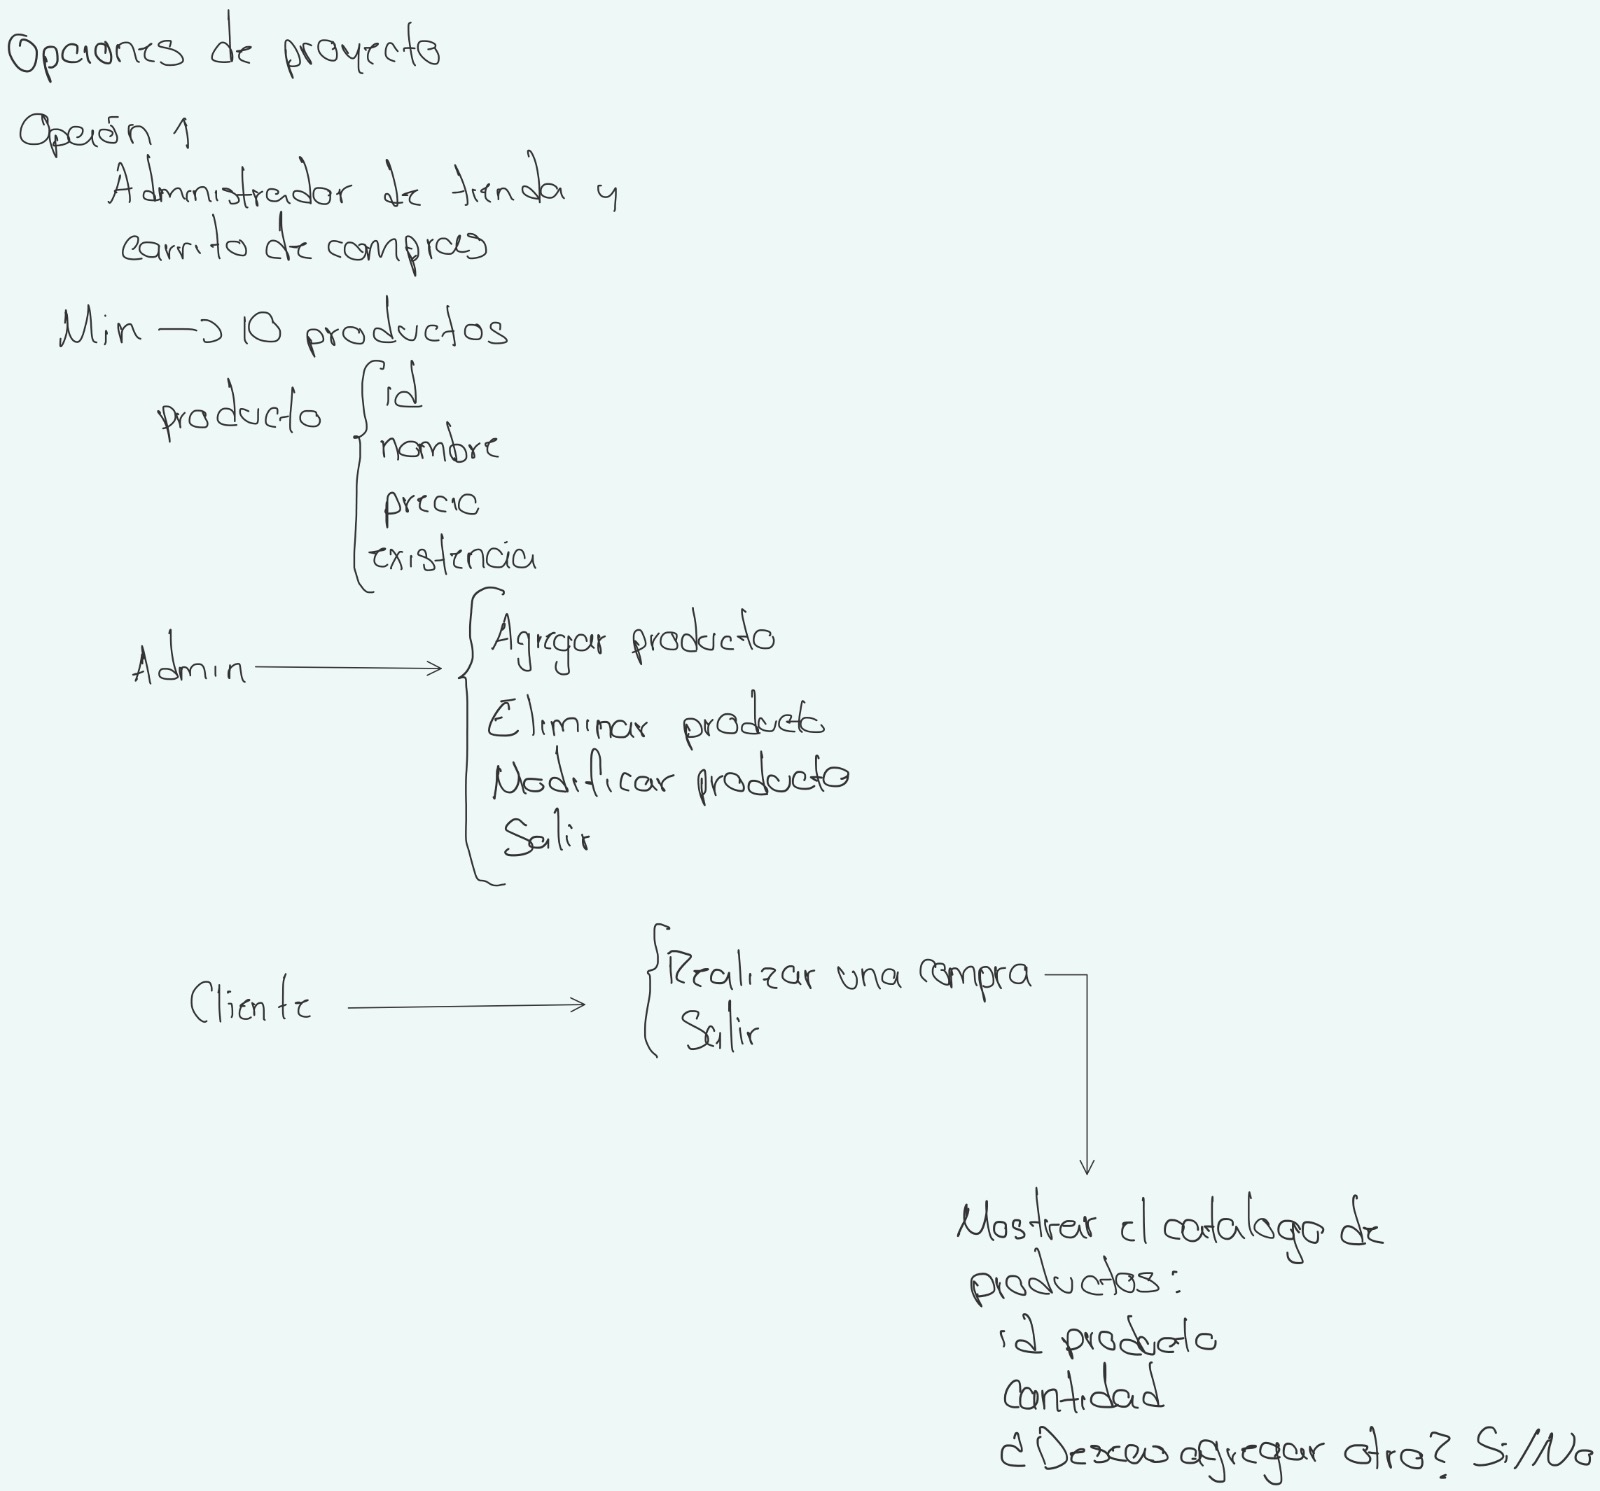 Opciones de proyecto
Opción 1
Administrador de tienda y
carrito de compras
Min → 10 productos
producto
id
nombre
precio
existencia
Admin
Agregar producto
Eliminar producto
Modificar producto
Salir
Cliente
Realizar una compra
Salir
Mostrar el catalogo de
productos:
id producto
cantidad
¿Deseas agregar otro? Si/No